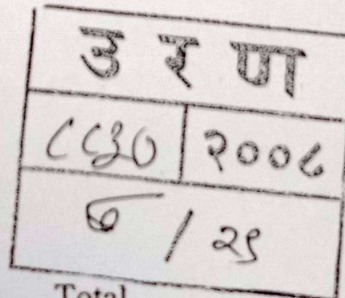 उ रण
८८३० २००८
७ / २९
Total